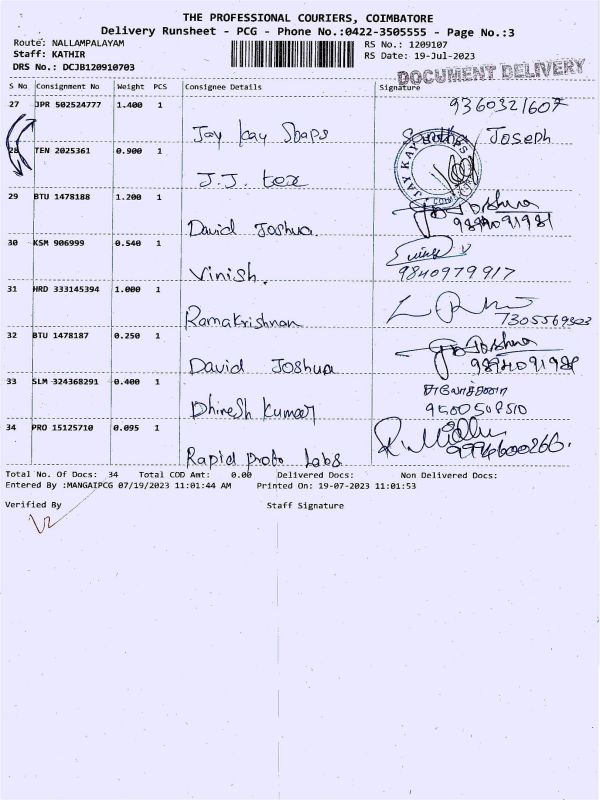 THE PROFESSIONAL COURIERS, COIMBATORE
Delivery Runsheet - PCG - Phone No.:0422-3505555 - Page No.:3
Route: NALLAMPALAYAM
RS No.: 1209107
Staff: KATHIR
RS Date: 19-Jul-2023
DRS No.: DCJB120910703
DOCUMENT DELIVERY
S No Consignment No Weight PCS Consignee Details Signature
27 JPR 502524777 1.400 1 9360321607
Jay kay Soaps Joseph
28 TEN 2025361 0.900 1
J.J. tex
JAY KAY
29 BTU 1478188 1.200 1
David Joshua
30 KSM 906999 0.540 1
Vinish. 9840979917
31 HRD 333145394 1.000 1
Ramakrishnan
32 BTU 1478187 0.250 1
David Joshua
33 SLM 324368291 0.400 1
Dhiresh Kumar
34 PRO 15125710 0.095 1
Rapid proto Labs
Total No. Of Docs: 34 Total COD Amt: 0.00 Delivered Docs: Non Delivered Docs:
Entered By :MANGAIPCG 07/19/2023 11:01:44 AM Printed On: 19-07-2023 11:01:53
Verified By Staff Signature